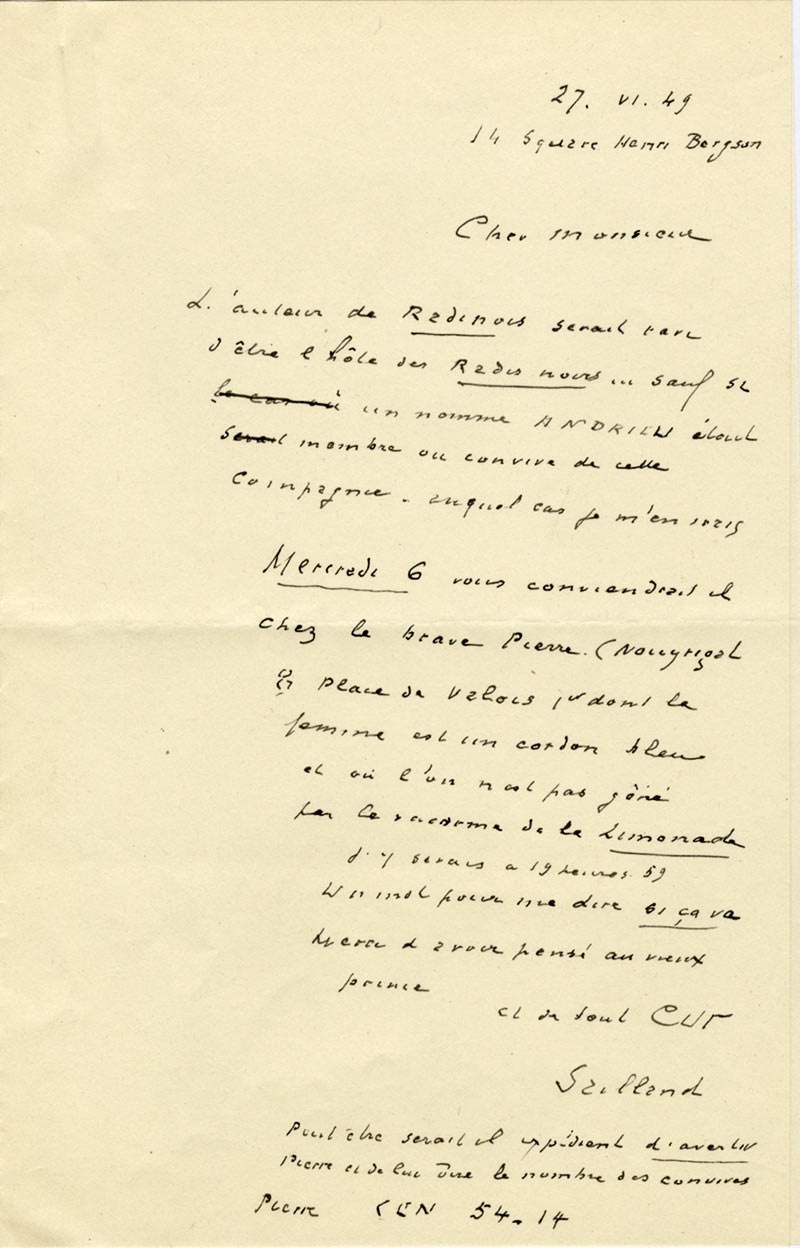 27. VI. 49
14 Square Henri Bergson
Cher Monsieur
L'auteur de Radinois serait ravi
d'être l'hôte des Radis noirs ... sauf si
le cas où un nommé ANDRIEU était
serait membre ou convive de cette
Compagnie. auquel cas je m'en irais
Mercredi 6 vous conviendrait il
chez le brave Pierre. (Nouyrigat
Place de Valois) dont la
femme est un cordon bleu
et où l'on n'est pas gêné
par le vacarme de la Limonade
J'y serais à 19 heures 59
Un mot pour me dire si ça va
Merci d'avoir pensé au vieux
prince
et de tout CUR
Sailland
Peut être serait il expédient d'avertir
Pierre et de lui dire le nombre des convives
Pierre CEN 54-14